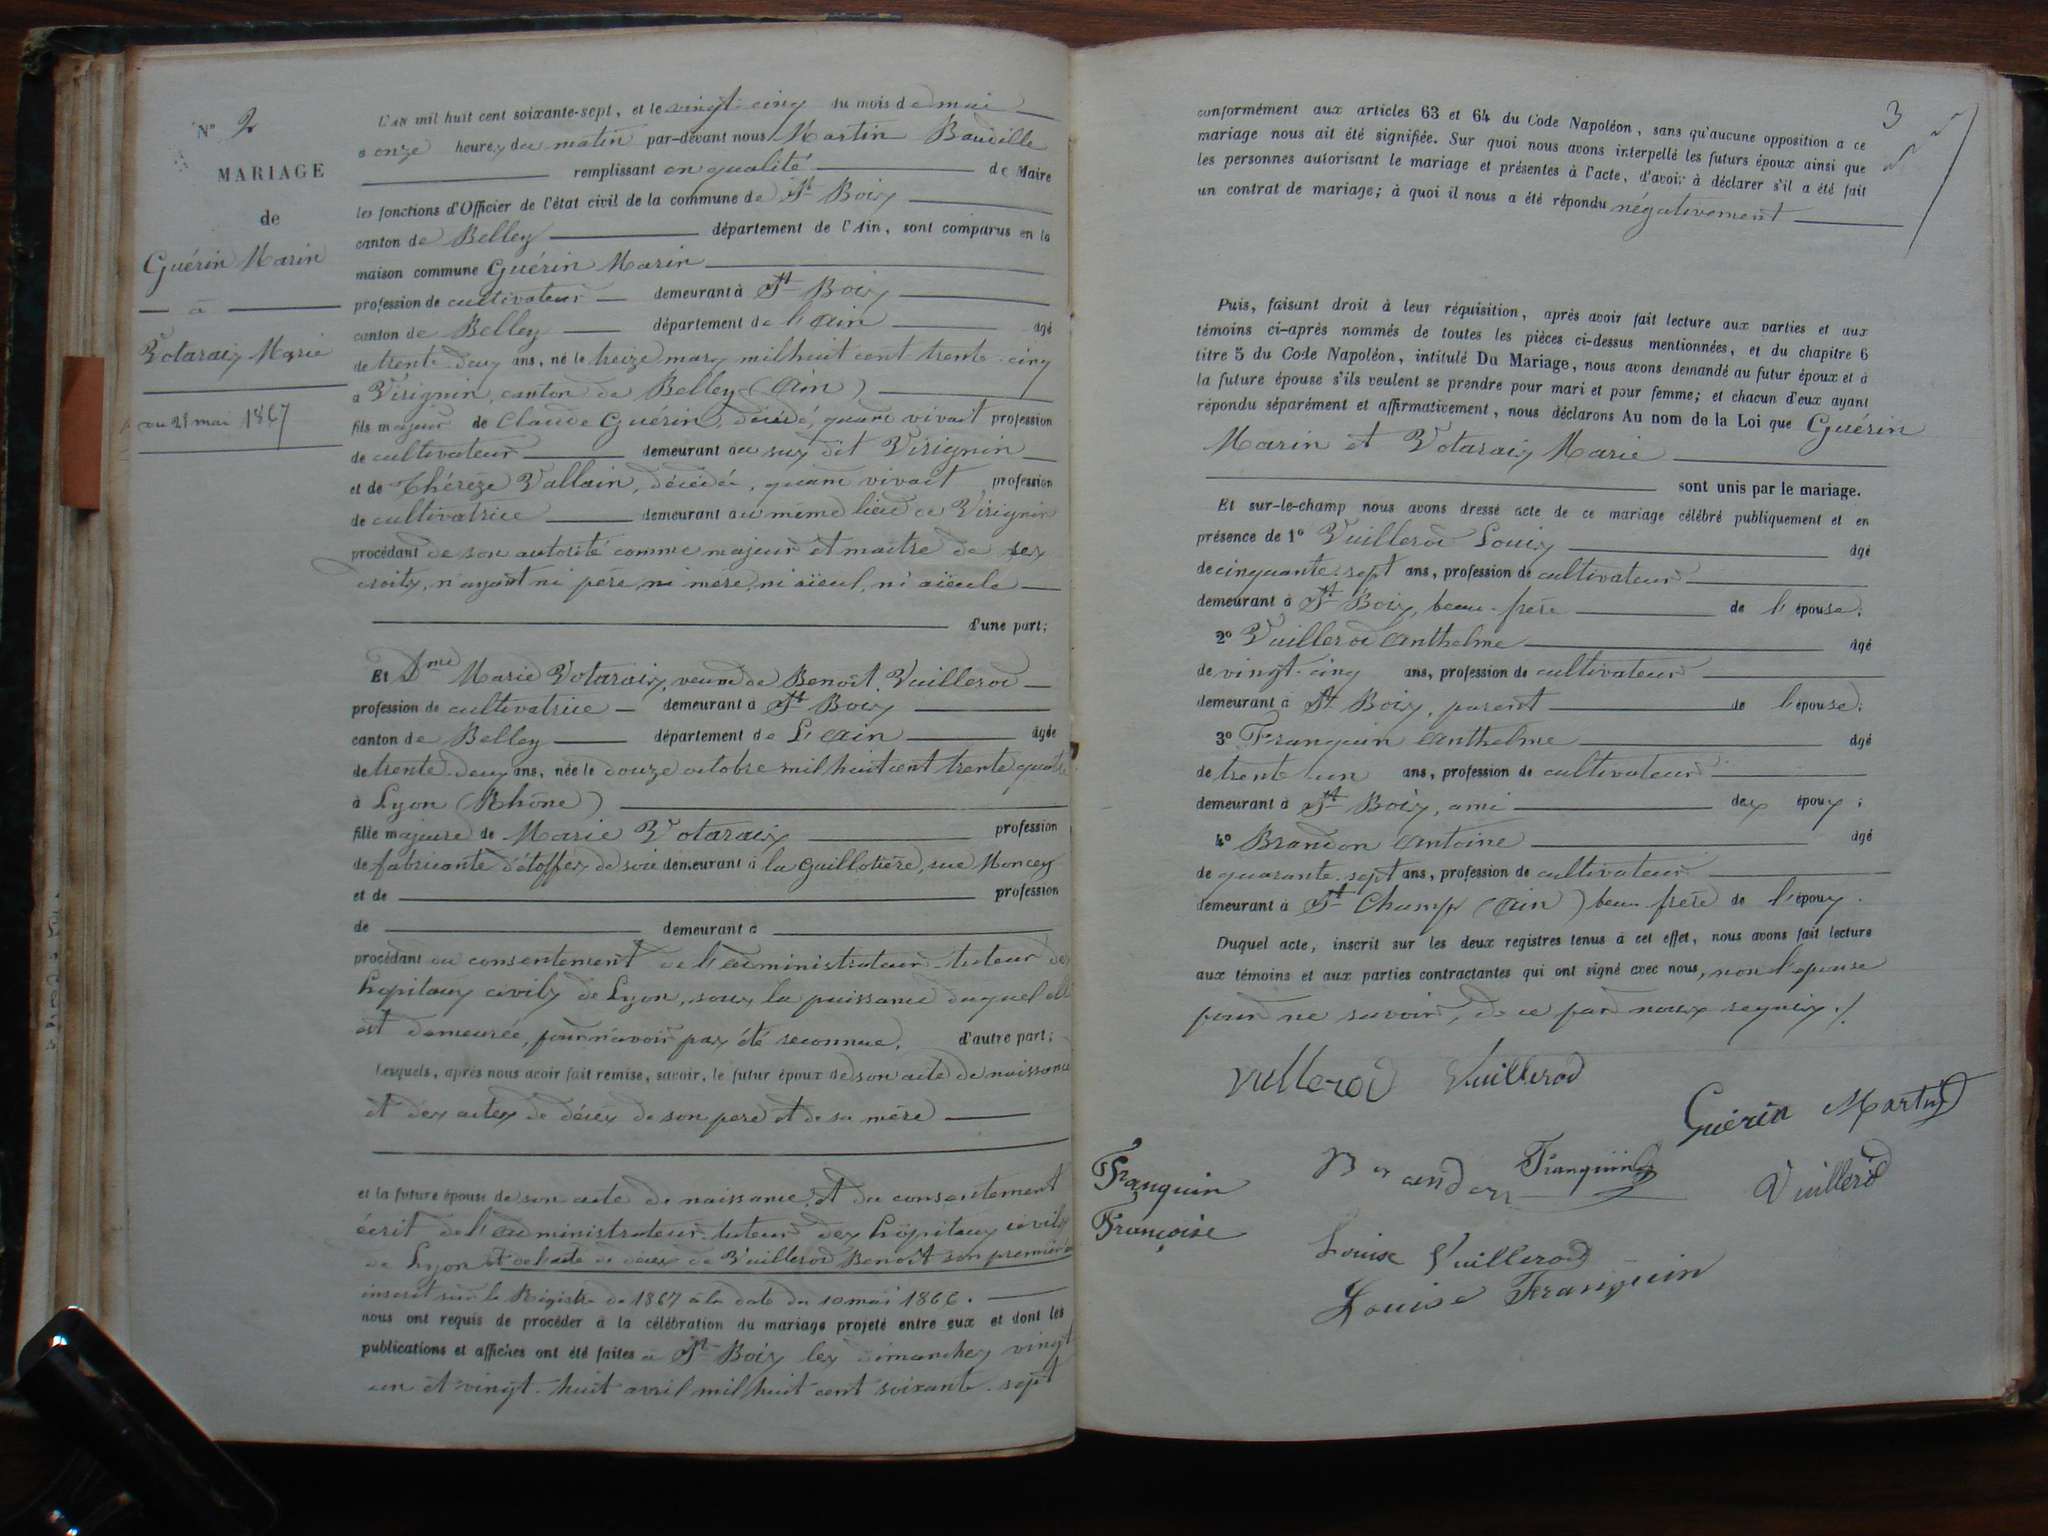 N° 2
MARIAGE
de
Guérin Marin
à
Votaraix Marie
du 25 mai 1867
L'AN mil huit cent soixante-sept, et le vingt-cinq du mois de mai
à onze heures du matin par-devant nous Martin Baudille
remplissant en qualité de Maire
les fonctions d'Officier de l'état civil de la commune de St Bois
canton de Belley département de l'Ain, sont comparus en la
maison commune Guérin Marin
profession de cultivateur demeurant à St Bois
canton de Belley département de l'Ain âgé
de trente-deux ans, né le treize mars mil huit cent trente-cinq
à Virignin, canton de Belley (Ain)
fils majeur de Claude Guérin, décédé, quand vivait profession
de cultivateur demeurant au susdit Virignin
et de Thérèze Vallain, décédée, quand vivait profession
de cultivatrice demeurant au meme lieu de Virignin
procédant de son autorité comme majeur et maitre de ses
droits, n'ayant ni père, ni mère, ni aïeul, ni aïeule
d'une part;
Et Dme Marie Votaraix, veuve de Benoît Vuillerod
profession de cultivatrice demeurant à St Bois
canton de Belley département de L'Ain âgée
de trente-deux ans, née le douze octobre mil huit cent trente quatre
à Lyon (Rhône)
fille majeure de Marie Votaraix profession
de fabricante d'étoffes de soie demeurant à la Guillotière, rue Moncey
et de profession
de demeurant à
procédant du consentement de l'administrateur-tuteur des
hopitaux civils de Lyon, sous la puissance duquel elle
est demeurée, pour n'avoir pas été reconnue, d'autre part;
Lesquels, après nous avoir fait remise, savoir, le futur époux de son acte de naissance
et des actes de décès de son père et de sa mère
et la future épouse de son acte de naissance, et du consentement
écrit de l'administrateur-tuteur des hôpitaux civils
de Lyon et de l'acte de décès de Vuillerod Benoît son premier
inscrit sur le Registre de 1867 à la date du 10 mai 1866.
nous ont requis de procéder à la célébration du mariage projeté entre eux et dont les
publications et affiches ont été faites à St Bois les dimanches vingt
un et vingt-huit avril mil huit cent soixante-sept
3
conformément aux articles 63 et 64 du Code Napoléon, sans qu'aucune opposition à ce
mariage nous ait été signifiée. Sur quoi nous avons interpellé les futurs époux ainsi que
les personnes autorisant le mariage et présentes à l'acte, d'avoir à déclarer s'il a été fait
un contrat de mariage; à quoi il nous a été répondu négativement
Puis, faisant droit à leur réquisition, après avoir fait lecture aux parties et aux
témoins ci-après nommés de toutes les pièces ci-dessus mentionnées, et du chapitre 6
titre 5 du Code Napoléon, intitulé Du Mariage, nous avons demandé au futur époux et à
la future épouse s'ils veulent se prendre pour mari et pour femme; et chacun d'eux ayant
répondu séparément et affirmativement, nous déclarons Au nom de la Loi que Guérin
Marin et Votaraix Marie
sont unis par le mariage.
Et sur-le-champ nous avons dressé acte de ce mariage célébré publiquement et en
présence de 1° Vuillerod Louis âgé
de cinquante-sept ans, profession de cultivateur
demeurant à St Bois, beau-frère de l'épouse;
2° Vuillerod Anthelme âgé
de vingt-cinq ans, profession de cultivateur
demeurant à St Bois, parent de l'épouse;
3° Franquin Anthelme âgé
de trente un ans, profession de cultivateur
demeurant à St Bois, ami des époux;
4° Brandon Antoine âgé
de quarante-sept ans, profession de cultivateur
demeurant à St Champ (Ain) beau-frère de l'époux.
Duquel acte, inscrit sur les deux registres tenus à cet effet, nous avons fait lecture
aux témoins et aux parties contractantes qui ont signé avec nous, non l'épouse
pour ne savoir, de ce par nous requis./.
Vullerod Vuillerod
Guérin Martin
Franquin
Françoise
Brandon Franquin
Vuillerod
Louise Vuillerod
Louise Franquin